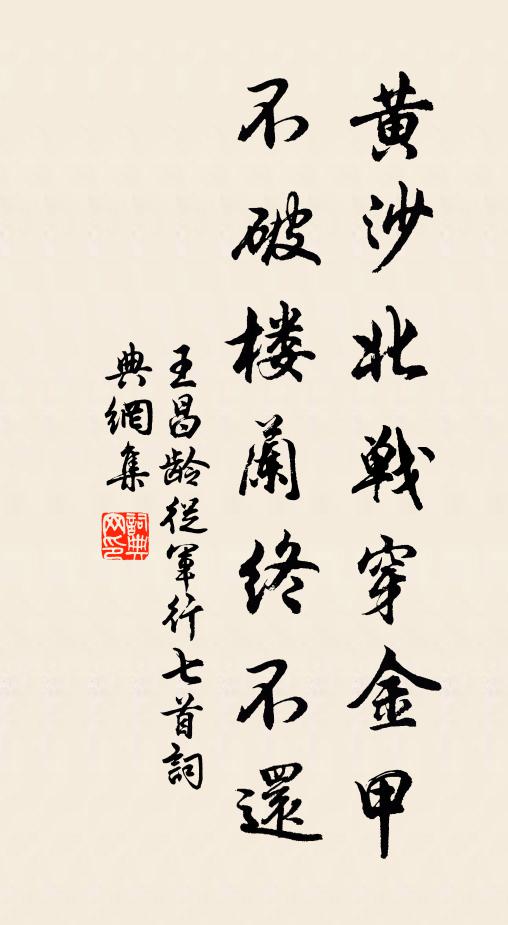 黄沙北戦穿金甲
不破楼蘭終不還
王昌龄從軍行七首詞
典網集
詞典
网印